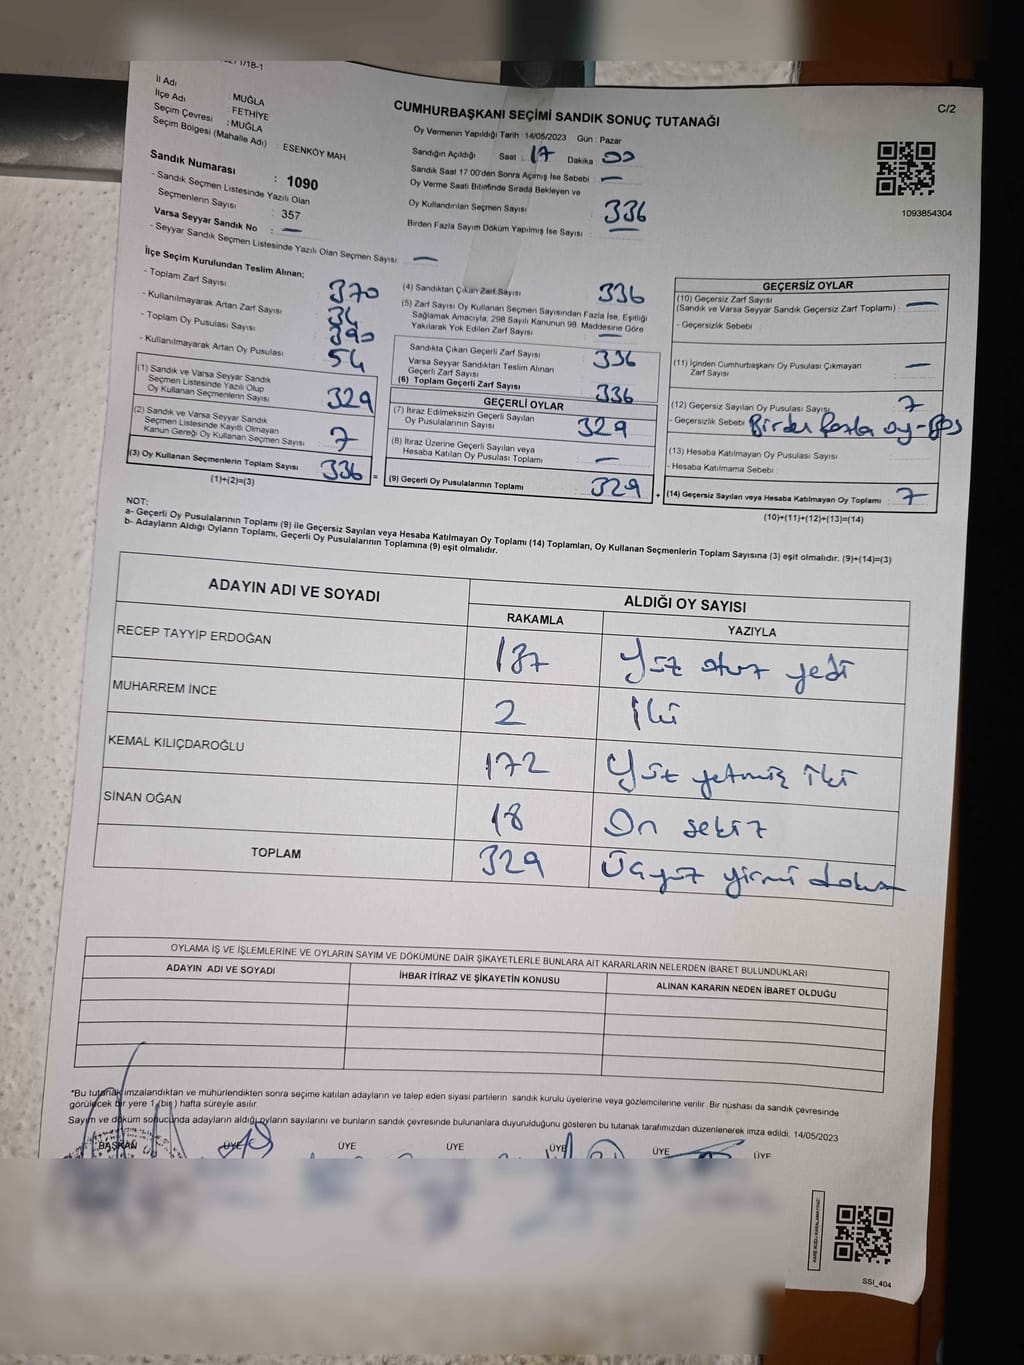 C/2
İl Adı
İlçe Adı : MUĞLA
Seçim Çevresi : FETHİYE
Seçim Bölgesi (Mahalle Adı) : MUĞLA
: ESENKÖY MAH
CUMHURBAŞKANI SEÇİMİ SANDIK SONUÇ TUTANAĞI
Oy Vermenin Yapıldığı Tarih : 14/05/2023 Gün : Pazar
Sandığın Açıldığı Saat : 17 Dakika : 00
Sandık Saat 17:00'den Sonra Açılmış İse Sebebi : —
Oy Verme Saati Bitiminde Sırada Bekleyen ve
Oy Kullandırılan Seçmen Sayısı : 336
Birden Fazla Sayım Döküm Yapılmış İse Sayısı : —
1093854304
Sandık Numarası : 1090
- Sandık Seçmen Listesinde Yazılı Olan
Seçmenlerin Sayısı : 357
Varsa Seyyar Sandık No : —
- Seyyar Sandık Seçmen Listesinde Yazılı Olan Seçmen Sayısı : —
İlçe Seçim Kurulundan Teslim Alınan;
- Toplam Zarf Sayısı : 370
- Kullanılmayarak Artan Zarf Sayısı : 34
- Toplam Oy Pusulası Sayısı : 390
- Kullanılmayarak Artan Oy Pusulası : 54
(1) Sandık ve Varsa Seyyar Sandık
Seçmen Listesinde Yazılı Olup
Oy Kullanan Seçmenlerin Sayısı : 329
(2) Sandık ve Varsa Seyyar Sandık
Seçmen Listesinde Kayıtlı Olmayan
Kanun Gereği Oy Kullanan Seçmen Sayısı : 7
(3) Oy Kullanan Seçmenlerin Toplam Sayısı : 336 =
(1)+(2)=(3)
(4) Sandıktan Çıkan Zarf Sayısı : 336
(5) Zarf Sayısı Oy Kullanan Seçmen Sayısından Fazla İse, Eşitliği
Sağlamak Amacıyla; 298 Sayılı Kanunun 98. Maddesine Göre
Yakılarak Yok Edilen Zarf Sayısı : —
Sandıkta Çıkan Geçerli Zarf Sayısı : 336
Varsa Seyyar Sandıktan Teslim Alınan
Geçerli Zarf Sayısı
(6) Toplam Geçerli Zarf Sayısı : 336
GEÇERLİ OYLAR
(7) İtiraz Edilmeksizin Geçerli Sayılan
Oy Pusulalarının Sayısı : 329
(8) İtiraz Üzerine Geçerli Sayılan veya
Hesaba Katılan Oy Pusulası Toplamı : —
(9) Geçerli Oy Pusulalarının Toplamı : 329 +
GEÇERSİZ OYLAR
(10) Geçersiz Zarf Sayısı
(Sandık ve Varsa Seyyar Sandık Geçersiz Zarf Toplamı) : —
- Geçersizlik Sebebi :
(11) İçinden Cumhurbaşkanı Oy Pusulası Çıkmayan
Zarf Sayısı : —
(12) Geçersiz Sayılan Oy Pusulası Sayısı : 7
- Geçersizlik Sebebi : Birden fazla oy
(13) Hesaba Katılmayan Oy Pusulası Sayısı :
- Hesaba Katılmama Sebebi :
(14) Geçersiz Sayılan veya Hesaba Katılmayan Oy Toplamı : 7
(10)+(11)+(12)+(13)=(14)
NOT:
a- Geçerli Oy Pusulalarının Toplamı (9) ile Geçersiz Sayılan veya Hesaba Katılmayan Oy Toplamı (14) Toplamları, Oy Kullanan Seçmenlerin Toplam Sayısına (3) eşit olmalıdır. (9)+(14)=(3)
b- Adayların Aldığı Oyların Toplamı, Geçerli Oy Pusulalarının Toplamına (9) eşit olmalıdır.
ADAYIN ADI VE SOYADI ALDIĞI OY SAYISI
RAKAMLA YAZIYLA
RECEP TAYYİP ERDOĞAN 137 Yüz otuz yedi
MUHARREM İNCE 2 İki
KEMAL KILIÇDAROĞLU 172 Yüz yetmiş iki
SİNAN OĞAN 18 On sekiz
TOPLAM 329 Üçyüz yirmi dokuz
OYLAMA İŞ VE İŞLEMLERİNE VE OYLARIN SAYIM VE DÖKÜMÜNE DAİR ŞİKAYETLERLE BUNLARA AİT KARARLARIN NELERDEN İBARET BULUNDUKLARI
ADAYIN ADI VE SOYADI İHBAR İTİRAZ VE ŞİKAYETİN KONUSU ALINAN KARARIN NEDEN İBARET OLDUĞU
*Bu tutanak imzalandıktan ve mühürlendikten sonra seçime katılan adayların ve talep eden siyasi partilerin sandık kurulu üyelerine veya gözlemcilerine verilir. Bir nüshası da sandık çevresinde
görülecek bir yere 1 (bir) hafta süreyle asılır.
Sayım ve döküm sonucunda adayların aldığı oyların sayılarını ve bunların sandık çevresinde bulunanlara duyurulduğunu gösteren bu tutanak tarafımızdan düzenlenerek imza edildi. 14/05/2023
BAŞKAN ÜYE ÜYE ÜYE ÜYE ÜYE ÜYE
SSI_404